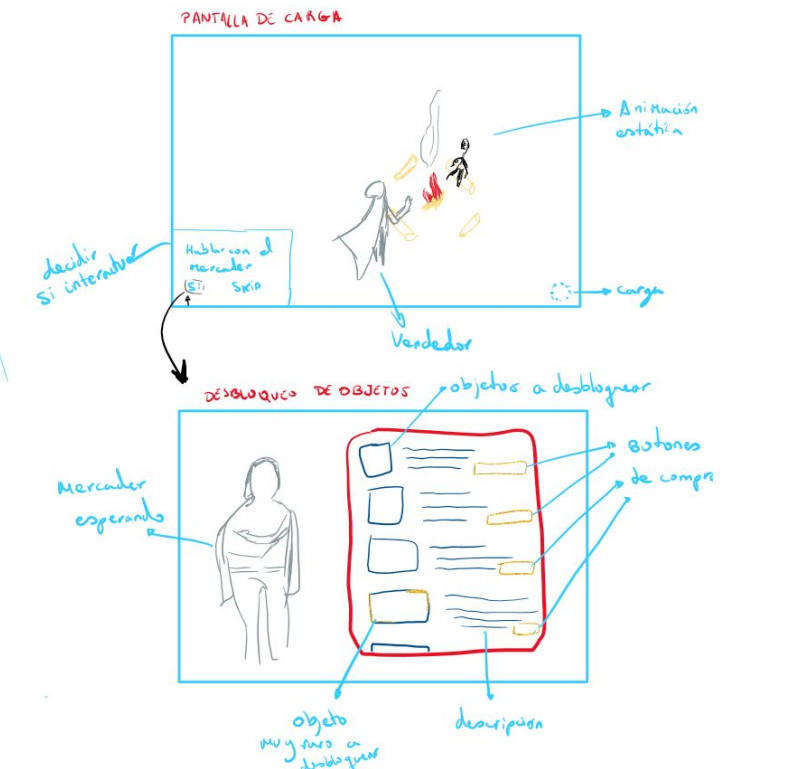 PANTALLA DE CARGA
Animación
estática
decidir
si interactuar
Hablar con el
mercader
Si
SKIP
carga
Vendedor
DESBLOQUEO DE OBJETOS
objetos a desbloquear
Mercader
esperando
Botones
de compra
objeto
muy raro a
desbloquear
descripcion